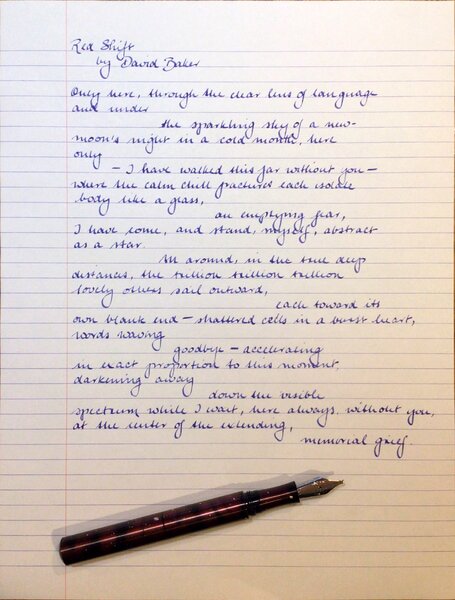 Red Shift
by David Baker
Only here, through the clear lens of language
and under
the sparkling sky of a new-
moon's night in a cold month, here
only
– I have walked this far without you –
where the calm chill fractures each isolate
body like a glass,
an emptying fear,
I have come, and stand, myself, abstract
as a star.
All around, in the true deep
distances, the trillion trillion trillion
lovely others sail outward,
each toward its
own blank end – shattered cells in a burst heart,
words waving
goodbye – accelerating
in exact proportion to this moment,
darkening away
down the visible
spectrum while I wait, here always, without you,
at the center of the extending,
memorial grief.